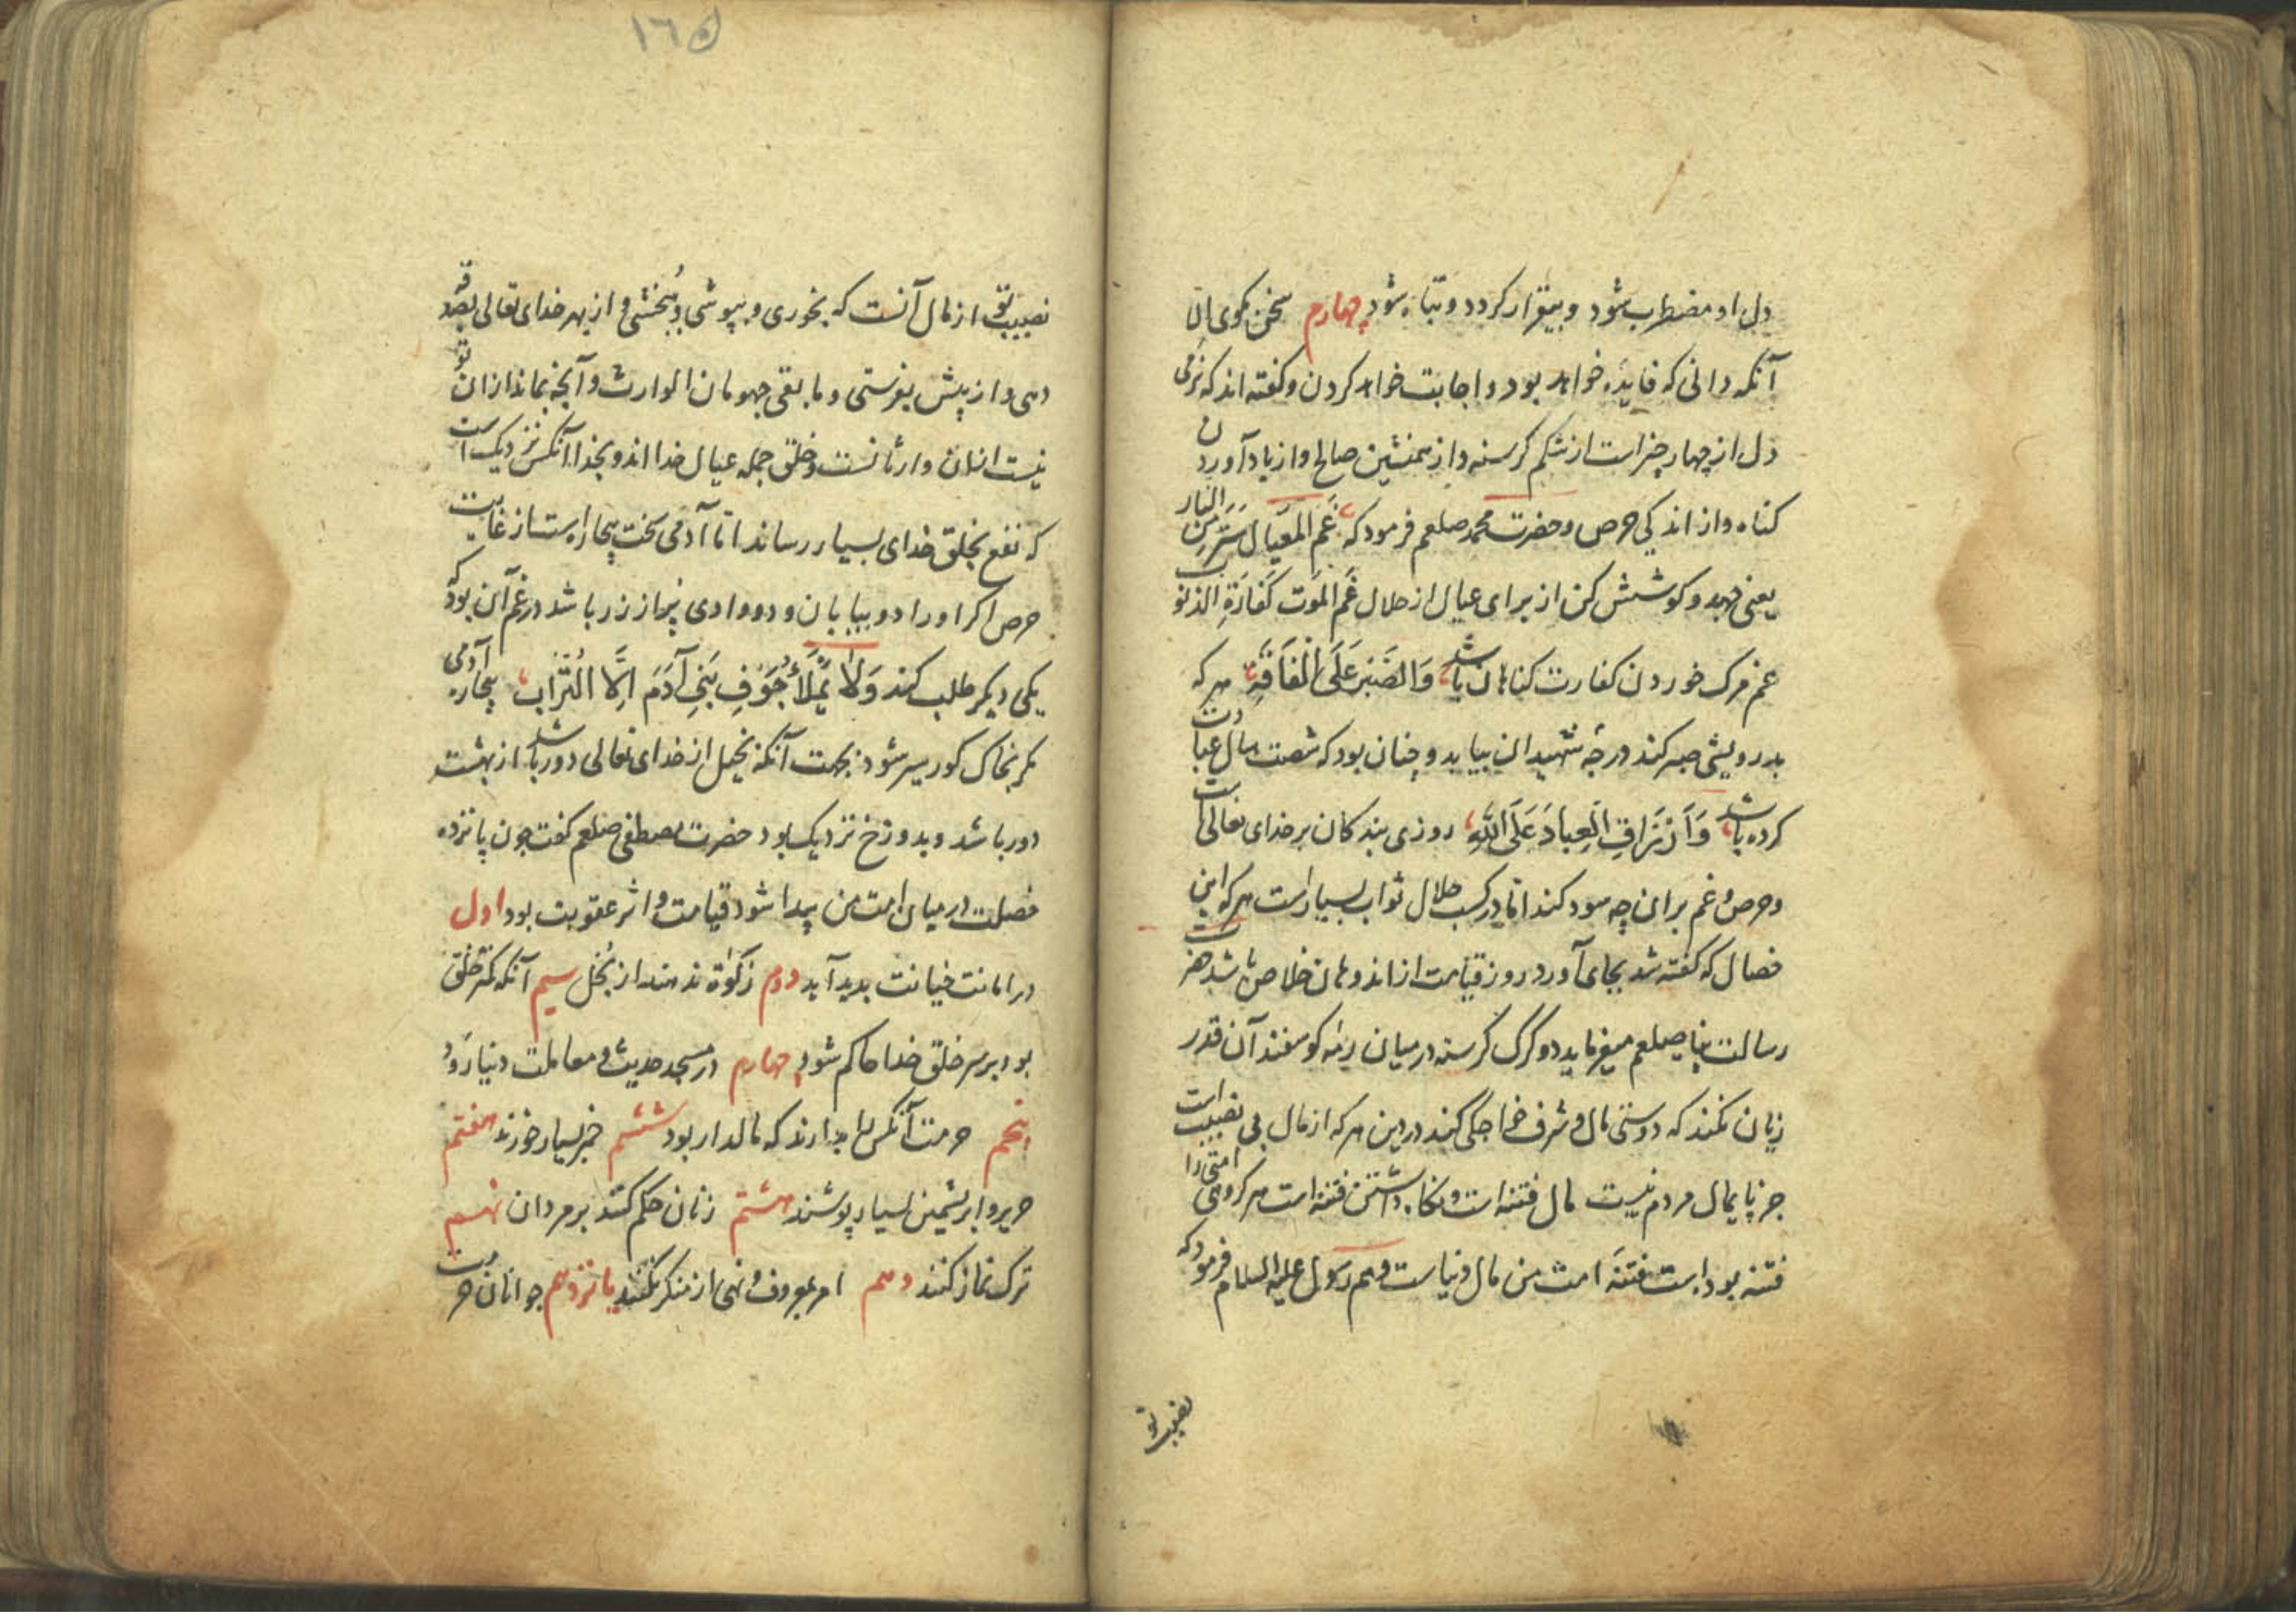 دل او مضطرب شود و بیقرار کردد و تباه شود چهارم سخن مکوی الا
آنکه دانی که فایده خواهد بود و اجابت خواهد کردن و کفته اند که نرمی
دل از چهار چیز است از شکم کرسنه و از همنشین صالح و از یاد آوردن
کناه و از اندکی حرص و حضرت محمد صلعم فرمود که غَم المَعیَال سَتَر مِنَ النار
یعنی جهد و کوشش کن از برای عیال از حلال غَم المَوَت کَفَارَةِ الذنوب
غم مرک خوردن کفارت کناهان باشد وَالصَبَر عَلَی الْفَاقَةِ هر که
بدرویشی صبر کند درجهٔ شهیدان بیابد و چنان بود که شصت سال عبادت
کرده باشد وَ اَرْزَاقِ الَعِبادَ عَلَی اللَّهِ روزی بندکان بر خدای تعالی است
و حرص و غم بر ان چه سود کند اما در کسب حلال ثواب بسیار است هر که این
خصال که کفته شد بجای آورد روز قیامت از اندوهان خلاص باشد حضرت
رسالت پناه صلعم میفرماید دو کرک کرسنه در میان رمهٔ کوسفند آن قدر
زیان نکند که دوستی مال و شرف خواجکی کند در دین هر که از مال بی نصیب است
جز پایمال مردم نیست مال فتنه است و نکاه داشتن فتنه است هر کروهی امتی را
فتنه بوده است فتنهٔ امت من مال دنیاست و هم رسول علیه السلام فرمود که
نصیب تو
١٦٥
نصیب تو از مال آنست که بخوری و بپوشی و ببخشی و از بهر خدای تعالی بصدقه
دهی و از پیش بفرستی و ما بقی جهو مان الوارث و آنچه بماند از ان تو
نیست از ان وارثانست و خلق جمله عیال خدا اند و بخدا آنکس نزدیک است
که نفع بخلق خدای بسیار رساند اما آدمی سخت بیچاره است از غایت
حرص اکر او را دو بیابان و دو وادی پر از زر باشد در غم آن بود که
یکی دیکر طلب کند وَلا یَمَلَأُ جَوَفِ بَنِی آدَمَ اِلَّا الْتُرَاب بیچاره آدمی
مکر بخاک کور سیر شود بجهت آنکه بخیل از خدای تعالی دور باشد از بهشت
دور باشد و بدوزخ نزدیک بود حضرت مصطفی صلعم کفت چون پانزده
خصلت در میان امت من پیدا شود قیامت و اثر عقوبت بود اول
در امانت خیانت بدید آید دوم زکوٰة ندهند از بُخل سیم آنکه کمتر خلق
بود بر سر خلق خدا حاکم شود چهارم در مسجد حدیث و معاملت دنیا رَوَد
پنجم حرمت آنکس را بدارند که مالدار بود ششم خمر بسیار خورند هفتم
حریر و ابریشمین بسیار پوشند هشتم زنان حکم کنند بر مردان نهم
ترک نماز کنند دهم امر بمعروف و نهی از منکر نکنند یانزدهم جوانان حرمت